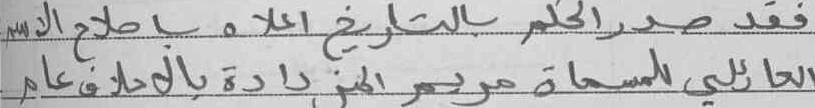 فقد صدر الحكم بالتاريخ اعلاه باصلاح الاسم
العائلي للمسماة مريم دادة عام